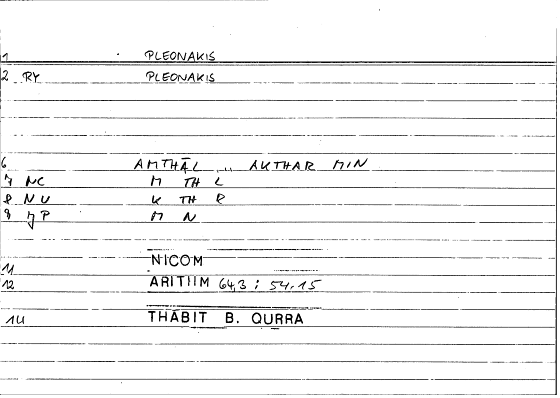 1 PLEONAKIS
2 RY PLEONAKIS
6 AMTHĀL .. AKTHAR MIN
7 NC M TH L
8 NU K TH R
9 JP M N
11 NICOM
12 ARITIIM 64,3 ; 54.15
14 THĀBIT B. QURRA